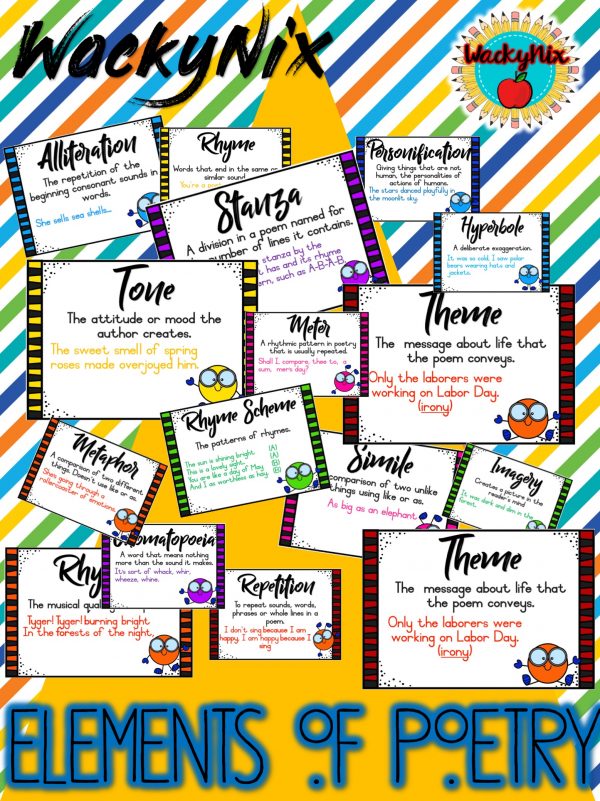 WackyNix
WackyNix
Alliteration
The repetition of the
beginning consonant sounds in
words.
She sells sea shells...
Rhyme
Words that end in the same or
similar sound.
You're a poet
Personification
Giving things that are not
human, the personalities of
actions of humans.
The stars danced playfully in
the moonlit sky.
Stanza
A division in a poem named for
number of lines it contains.
stanza by the
it has and its rhyme
such as A-B-A-B.
Hyperbole
A deliberate exaggeration.
It was so cold, I saw polar
bears wearing hats and
jackets.
Tone
The attitude or mood the
author creates.
The sweet smell of spring
roses made overjoyed him.
Meter
A rhythmic pattern in poetry
that is usually repeated.
Shall I, compare, thee to, a
sum, mers day?
Theme
The message about life that
the poem conveys.
Only the laborers were
working on Labor Day.
(irony)
Rhyme Scheme
The patterns of rhymes.
The sun is shining bright (A)
This is a lovely sight, (A)
You are like a day of May (B)
And I as worthless as hay. (B)
Metaphor
A comparison of two different
things. Doesn't use like or as.
She's going through a
rollercoaster of emotions.
Simile
comparison of two unlike
things using like or as.
As big as an elephant.
Imagery
Creates a picture in the
reader's mind
It was dark and dim in the
forest.
Onomatopoeia
A word that means nothing
more than the sound it makes.
It's sort of whack, whir,
wheeze, whine.
The musical
Tyger! Tyger! burning bright
In the forests of the night,
Repetition
To repeat sounds, words,
phrases or whole lines in a
poem.
I don't sing because I am
happy, I am happy because I
sing
Theme
The message about life that
the poem conveys.
Only the laborers were
working on Labor Day.
(irony)
ELEMENTS OF POETRY